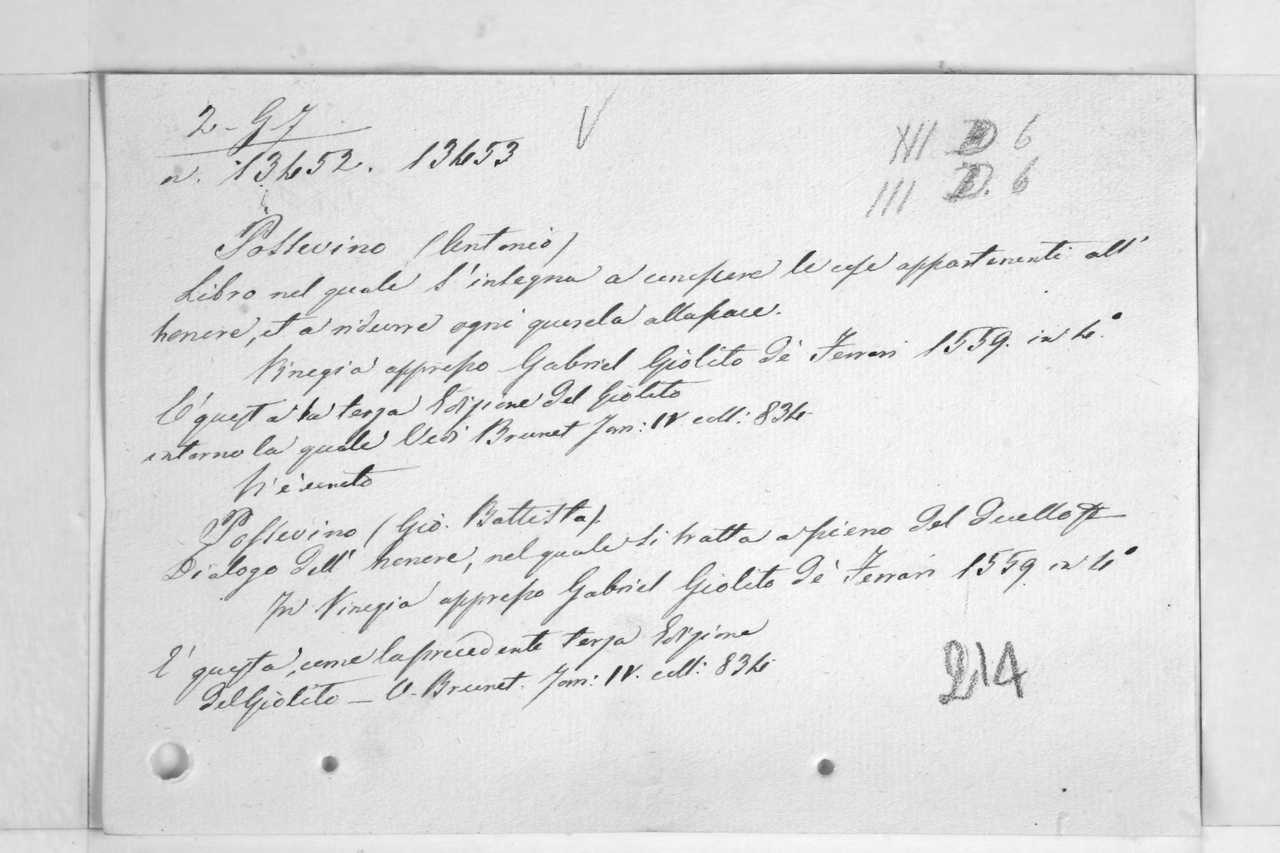 2 - G J
n. 13452. 13453
V
XII D 6
III D. 6
Possevino (Antonio)
Libro nel quale s'insegna a conoscere le cose appartenenti all'
honore, et a ridurre ogni querela alla pace.
Vinegia appresso Gabriel Giolito de' Ferrari 1559. in 4.°
E' questa la terza Edizione del Giolito
intorno la quale Vedi Brunet Tom: IV coll: 834
V'è unito
Possevino (Giò. Battista).
Dialogo dell' honore, nel quale si tratta a pieno del duello
In Vinegia appresso Gabriel Giolito de' Ferrari 1559. in 4°
E' questa, come la precedente terza Edizione
del Giolito — V. Brunet. Tom: IV. coll: 834
214